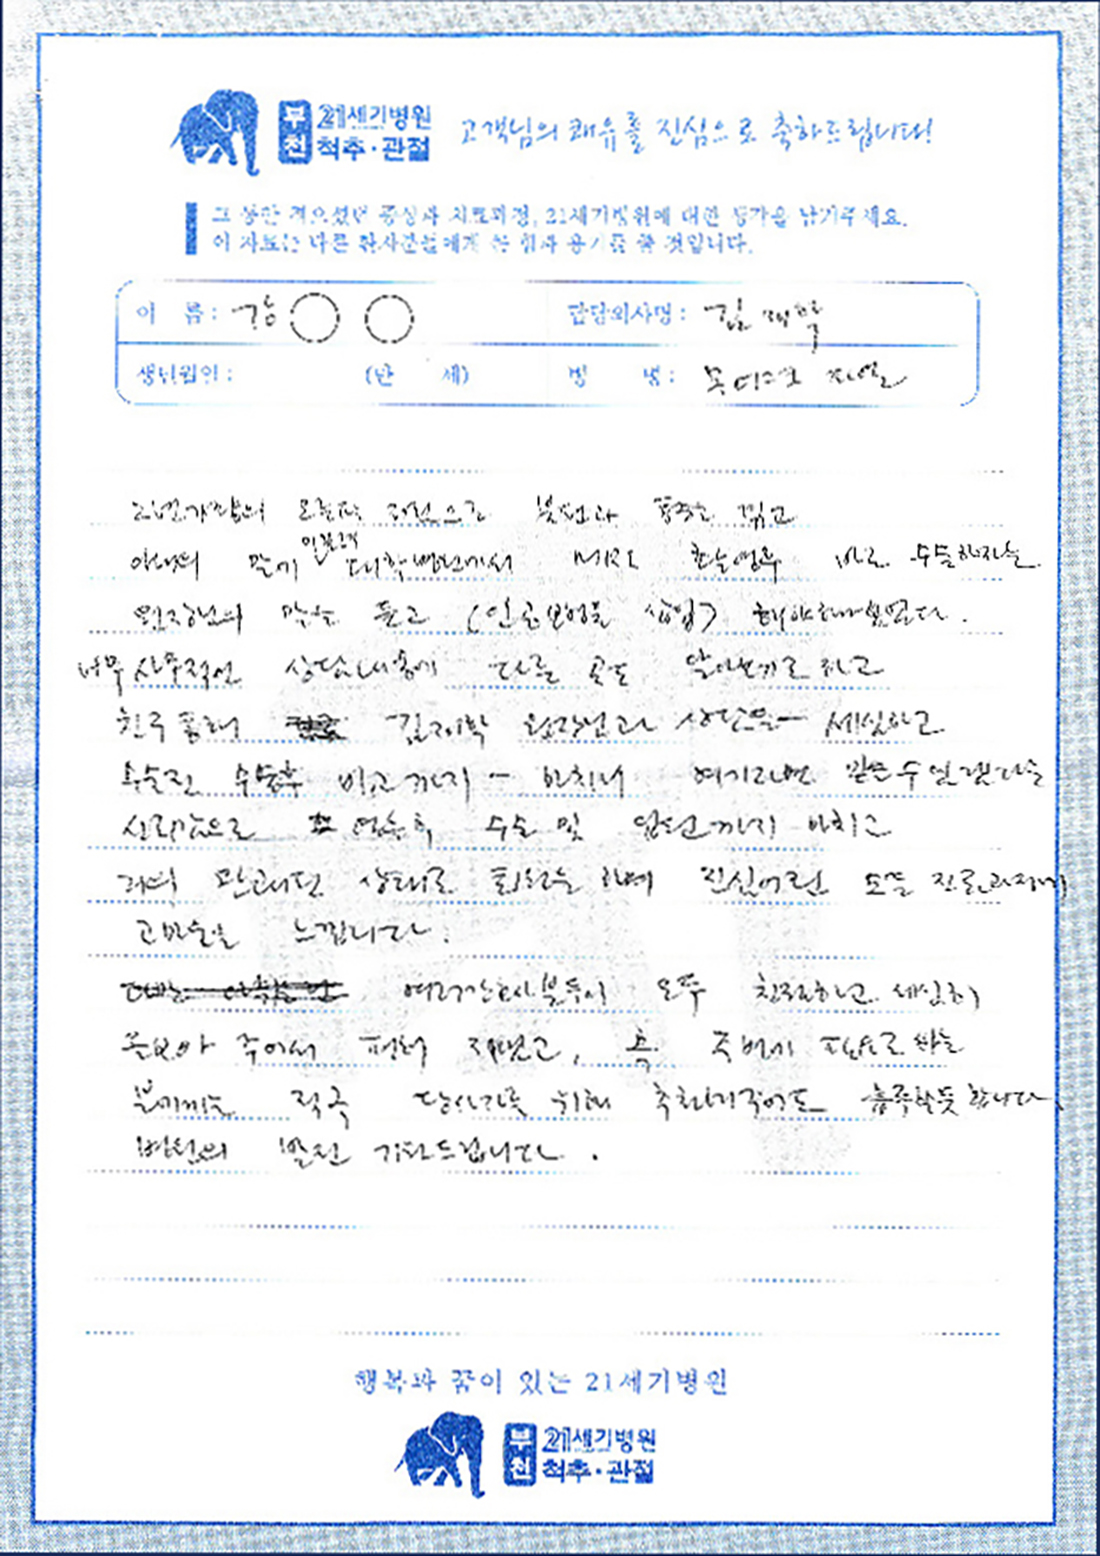 부천 21세기병원 척추·관절
고객님의 쾌유를 진심으로 축하드립니다!
그 동안 겪으셨던 증상과 치료과정, 21세기병원에 대한 평가를 남겨주세요.
이 자료는 다른 환자분들에게 큰 힘과 용기를 줄 것입니다.
이 름: 강
담당의사명: 김재학
생년월일: (만 세)
병 명: 목디스크
2년가량의 오른팔 저림으로 불편과 통증을 겪고
대학병원에서 MRI 촬영후 바로 수술하자는
원장님의 말을 듣고 (인공보형물 삽입) 해야하나 싶었다.
너무 사무적인 상담내용에 다른 곳도 알아보기로 하고
친구통해 김재학 원장님과 상담을 세심하고
수술전 수술후 비교까지 마치니 여기라면 믿을수 있겠다는
신뢰감으로 수술 및 입원까지 마치고
거의 완쾌된 상태로 퇴원을 하며 진심어린 모든 진료과정에
고마움을 느낍니다.
여러간호사분들이 모두 친절하고 세심히
돌보아 주어서 편히 지냈고, 혹 주변에 필요로 하는
분에게는 적극
병원의 발전 기대드립니다.
행복과 꿈이 있는 21세기병원
부천 21세기병원 척추·관절